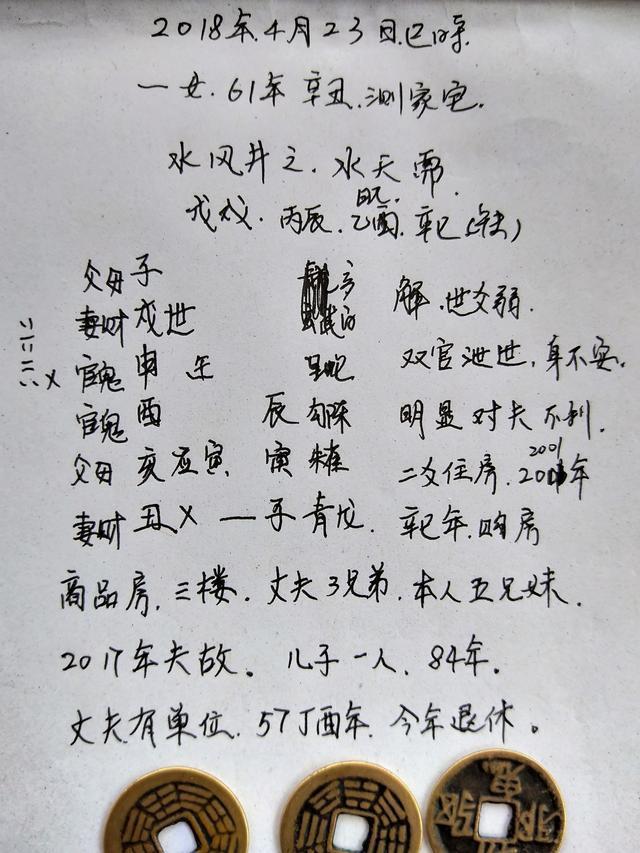 2018年.4月23日.巳时.
一女.61年 辛丑.测家宅.
水风井之.水天需.
戊戌.丙辰.乙酉.辛巳(午未)
日元.
父母子 玄 解.世爻弱.
妻财戌世 白 双官泄世.身不安.
官鬼申 午 明显对夫不利.
官鬼酉 辰勾陈 二爻住房.2001年
父母亥应寅 寅朱雀 辛巳年.购房
妻财丑X 一子青龙.
商品房.三楼.丈夫3兄弟.本人五兄妹.
2017年夫故。儿子一人.84年.
丈夫有单位.57丁酉年.今年退休。